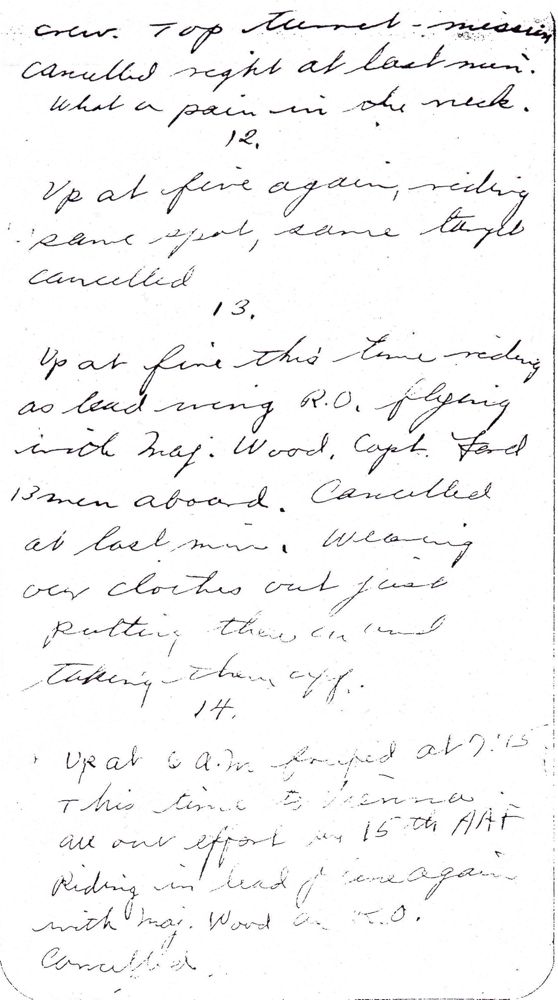 crew. Top turret - mission
cancelled right at last min.
What a pain in the neck.
12.
Up at five again, riding
same spot, same target
cancelled
13.
Up at five this time riding
as lead wing R.O. flying
with Maj. Wood, Capt. Ford
13 men aboard. Cancelled
at last min. Wearing
our clothes out just
putting them on and
taking them off.
14.
Up at 6 A.M. briefed at 7:15
This time to Vienna.
all out effort by 15th AAF
Riding in lead plane again
with Maj. Wood as R.O.
Cancelled.